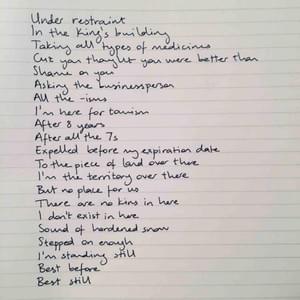 Under restraint
In the King's building
Taking all types of medicines
Cuz you thought you were better than
Shame on you
Asking the businessperson
All the -isms
I'm here for tourism
After 8 years
After all the 7s
Expelled before my expiration date
To the piece of land over there
I'm the territory over there
But no place for us
There are no kins in here
I don't exist in here
Sound of hardened snow
Stepped on enough
I'm standing still
Best before
Best still